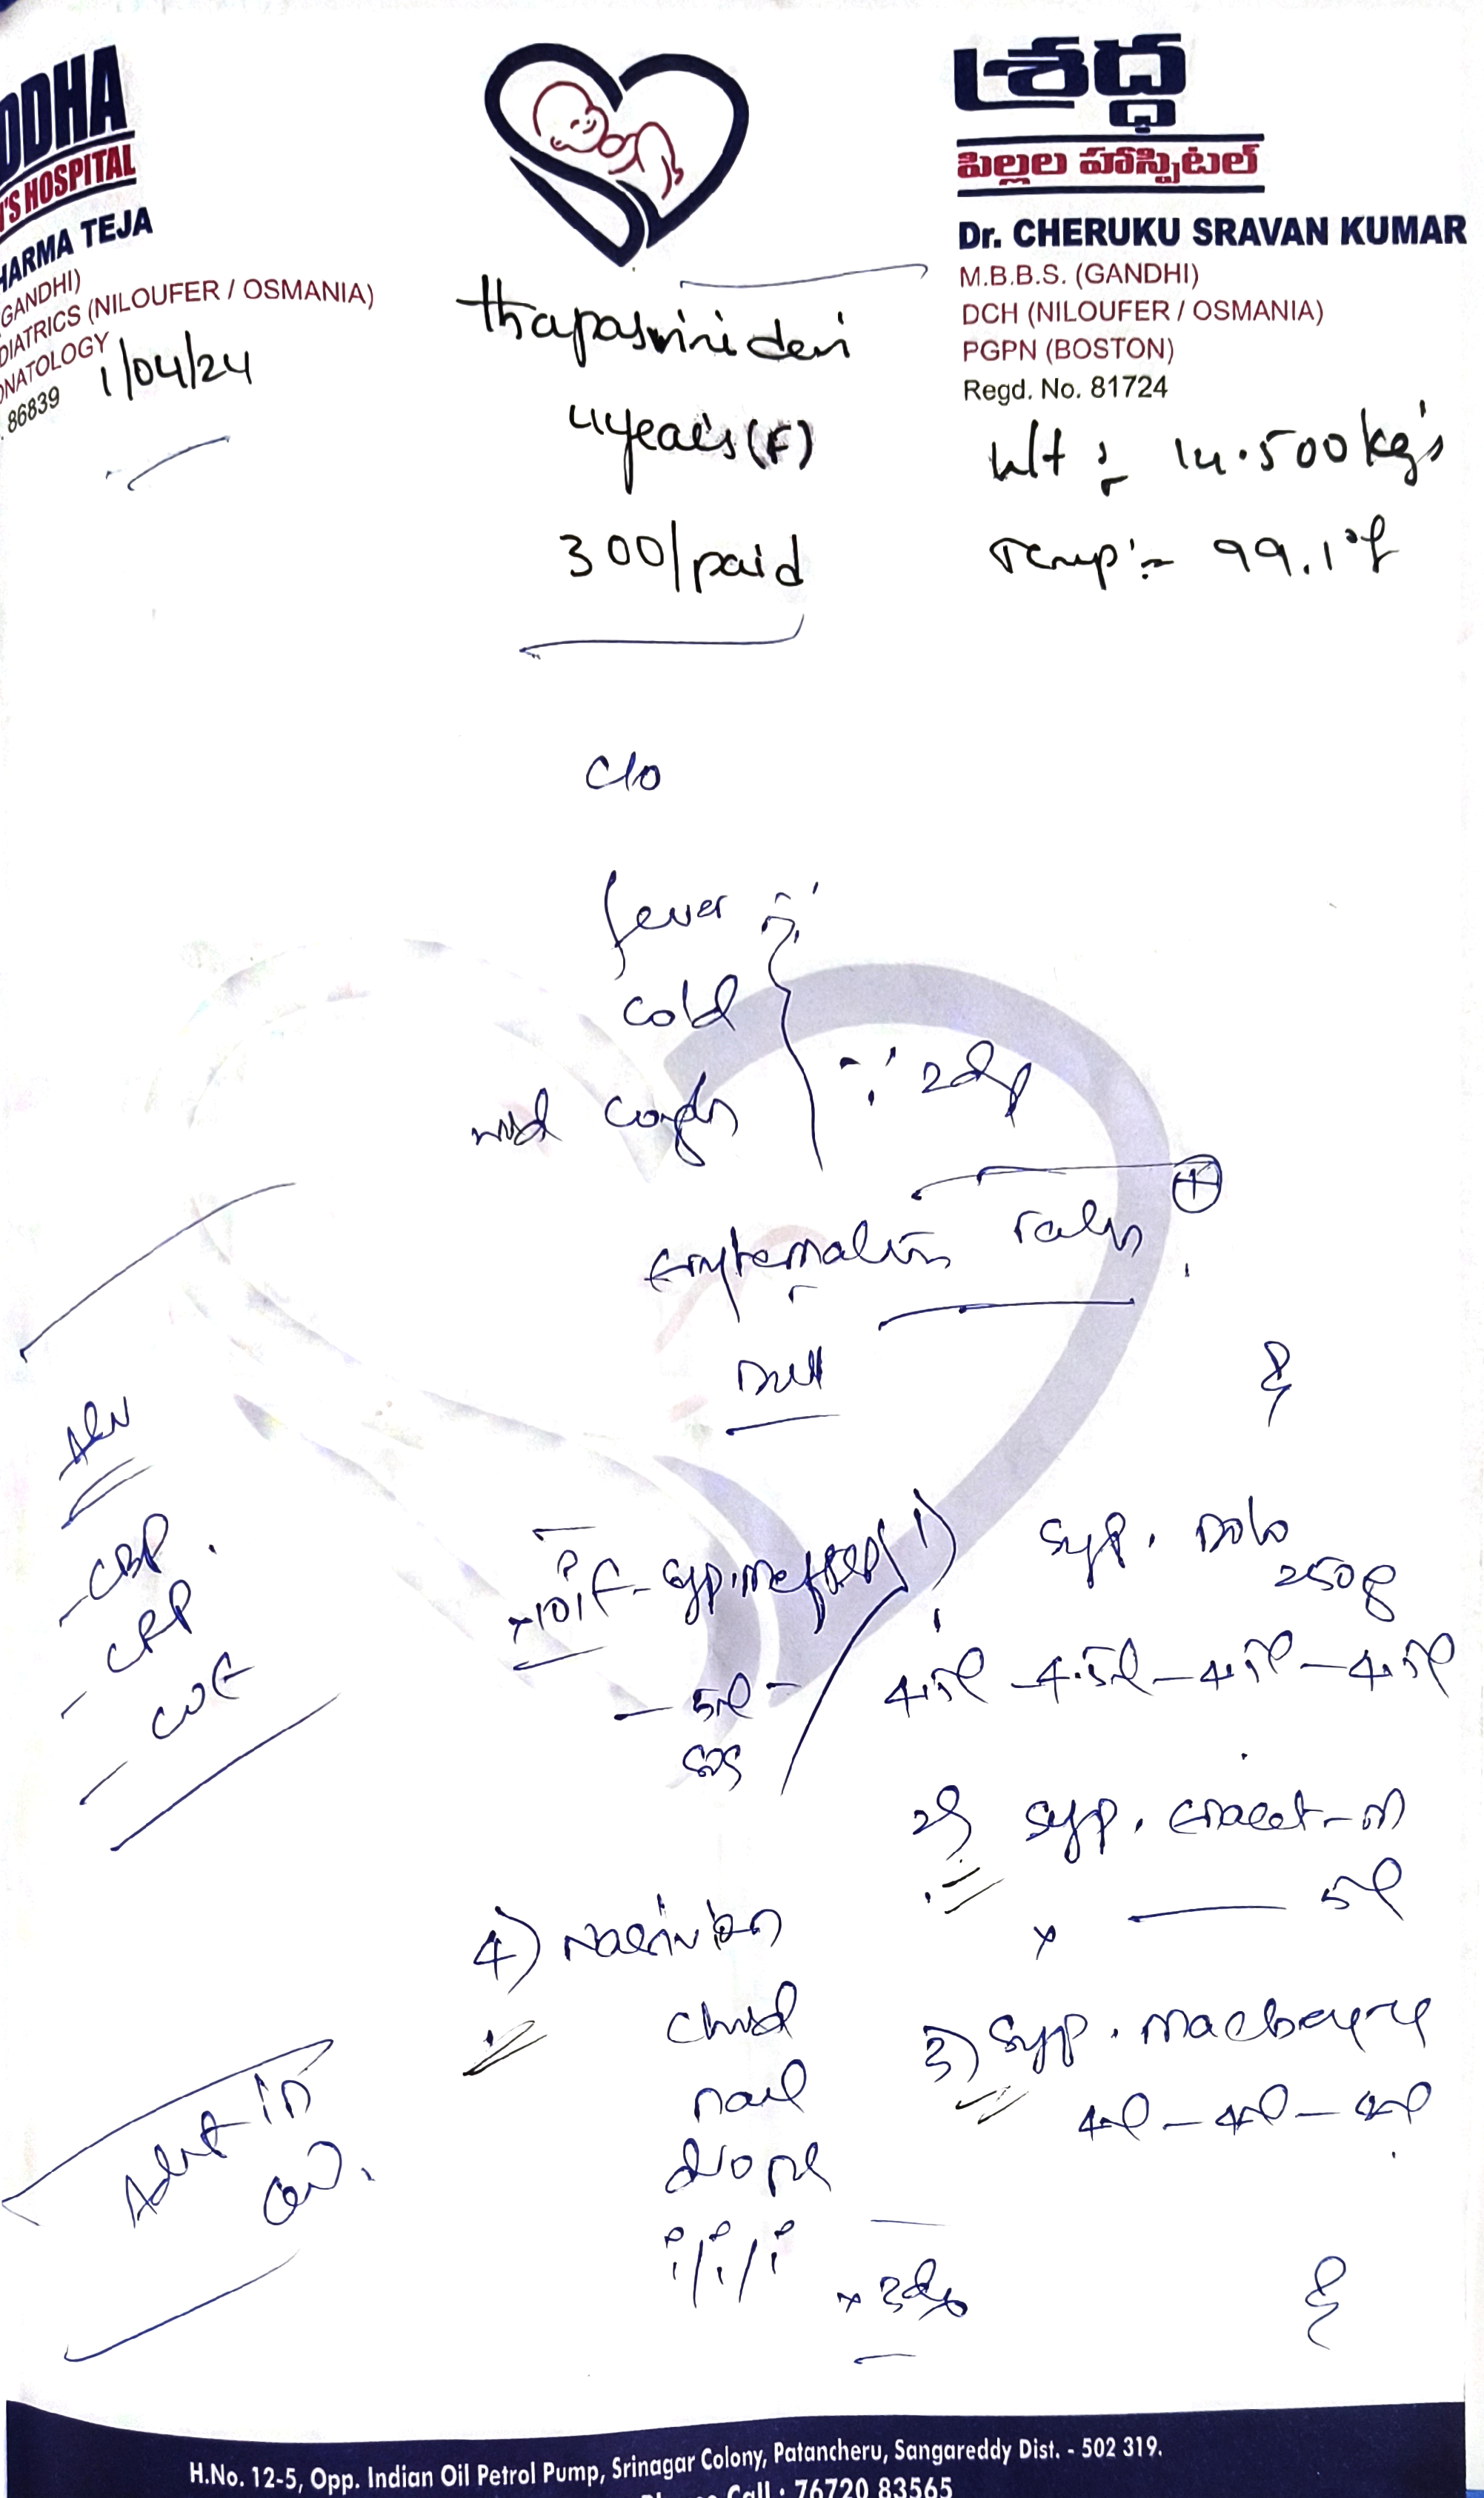 DDHA
'S HOSPITAL
HARMA TEJA
GANDHI)
DIATRICS (NILOUFER / OSMANIA)
ONATOLOGY
86839
1/04/24
శ్రద్ధ
పిల్లల హాస్పిటల్
Dr. CHERUKU SRAVAN KUMAR
M.B.B.S. (GANDHI)
DCH (NILOUFER / OSMANIA)
PGPN (BOSTON)
Regd. No. 81724
thapasvini devi
4years (F)
300/paid
wt :- 14.500kg's
Temp :- 99.1°f
c/o
fever
cold
mild cough
Dull
- CBP.
- CRP
- CUE
1) Syp. Dolo
250
4.5ml - 4.5ml - 4.5ml - 4.5ml
- 5ml -
SOS
2) Syp.
5ml
3) Syp.
4ml - 4ml - 4ml
4) Nasivion
child
nasal
drops
i/i/i
x 3days
H.No. 12-5, Opp. Indian Oil Petrol Pump, Srinagar Colony, Patancheru, Sangareddy Dist. - 502 319.
Call : 76720 83565